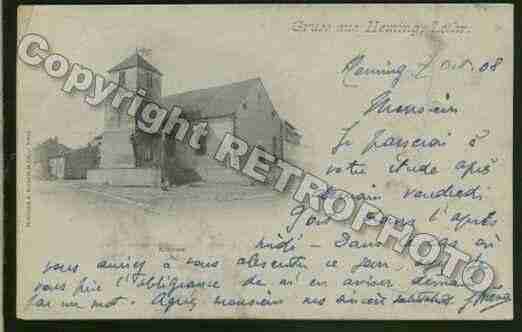 Gruss aus Heming, Lothr.
Heming 7 Oct. 08
Monsieur
Je passerai à
votre étude après
demain vendredi
dans l'après
midi – Dans le cas où
vous auriez à vous absenter ce jour,
vous prie l'obligeance de m'en aviser
par un mot. Agréez monsieur mes sincères salutations
Copyright RETROPHOTO